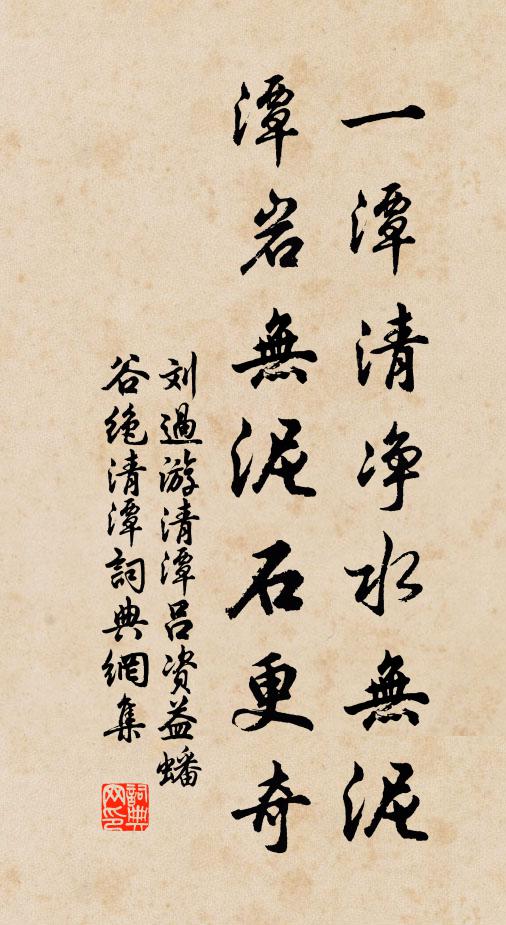 一潭清净水無泥
潭岩無泥石更奇
刘過游清潭吕资益蟠
谷绝清潭詞典網集
詞典网印